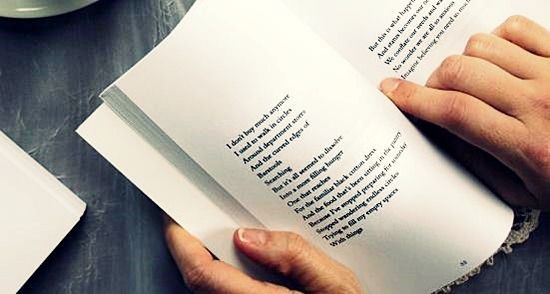 I don't buy much anymore
I used to walk in circles
Around department stores
And the curved edges of
Barstools
Searching
But it's all seemed to dissolve
Into a more filling hunger
One that reaches
For the familiar black cotton dress
And the food that's been sitting in the pantry
Because I've stopped preparing to wonder
Stopped wandering endless circles
Trying to fill my empty spaces
With things
But this is what happen
And status becomes our
We conflate our needs and wa
No wonder we are all so anxious
Imagine believing you need so mu